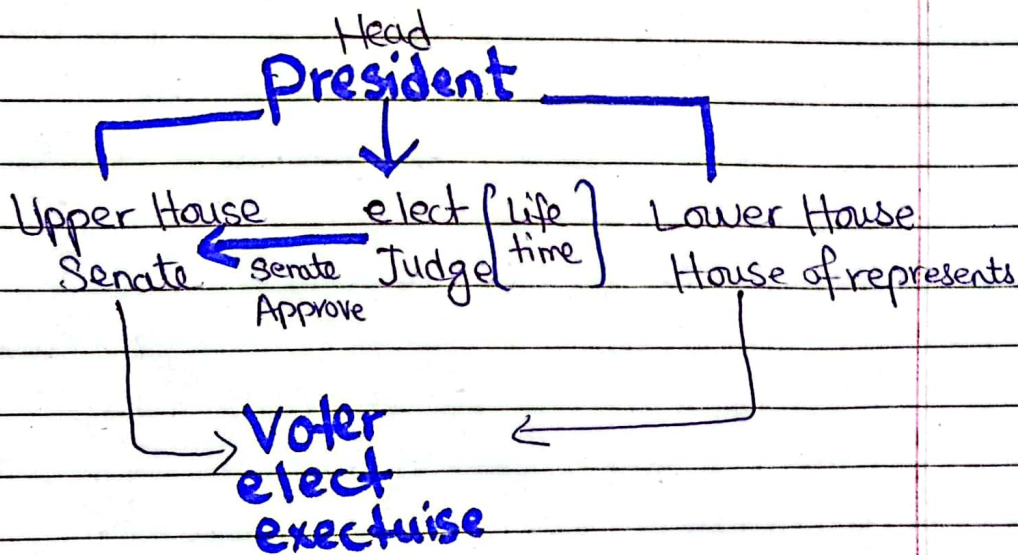 Head
President
Upper House
Senate
elect
Judge
Life
time
Senate
Approve
Lower House
House of represents
Voter
elect
exectuise